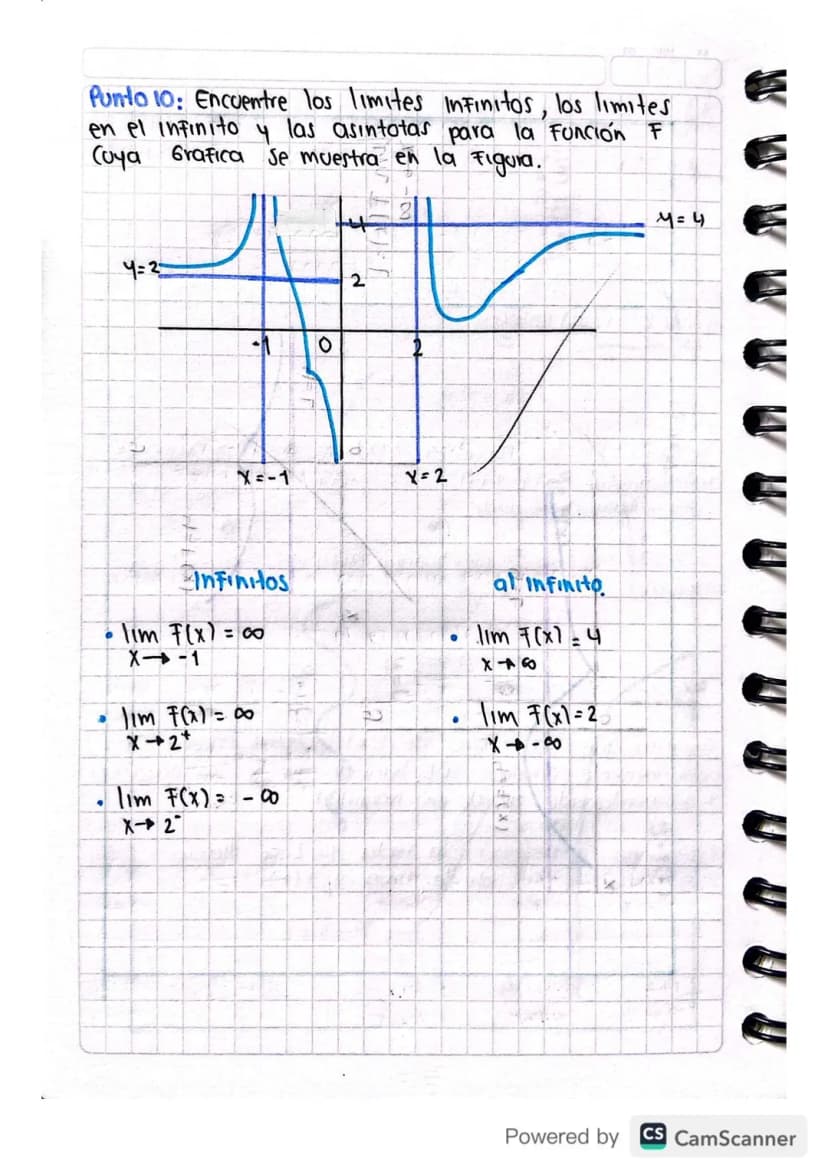 Punto 10: Encuentre los limites infinitos, los limites
en el infinito y las asintotas para la Función F
Cuya Grafica Se muestra en la Figura.
y=4
4
3
y=2
2
-1
0
2
x=-1
x=2
Infinitos
al infinito.
• lim F(x) = ∞
x→ -1
• lim F(x) = 4
x→∞
• lim F(x) = ∞
x→2⁺
• lim F(x)=2
x→ -∞
• lim F(x) = -∞
x→ 2⁻
Powered by CS CamScanner